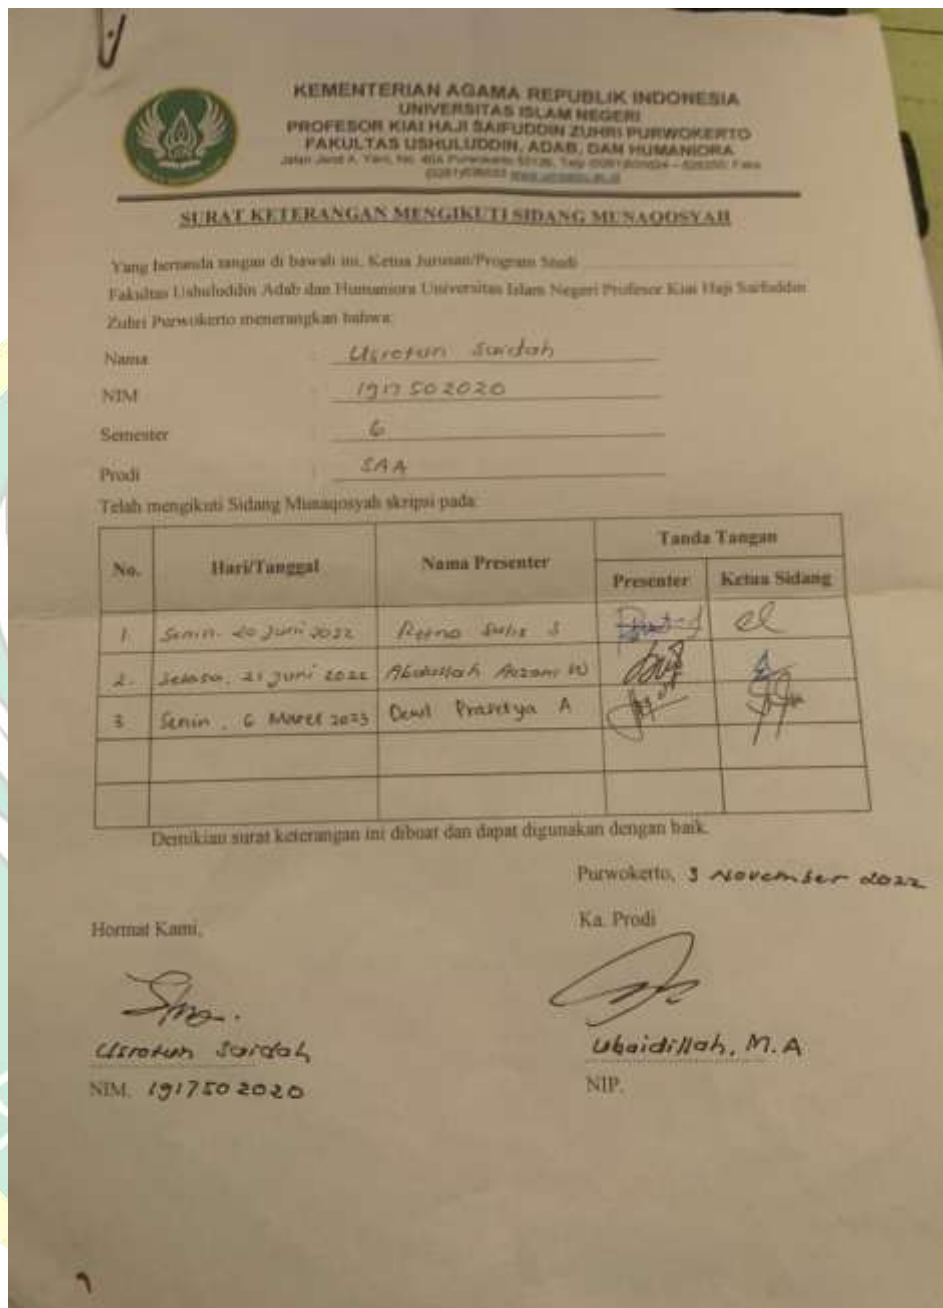 KEMENTERIAN AGAMA REPUBLIK INDONESIA
UNIVERSITAS ISLAM NEGERI
PROFESOR KIAI HAJI SAIFUDDIN ZUHRI PURWOKERTO
FAKULTAS USHULUDDIN, ADAB, DAN HUMANIORA
Jalan Jend A. Yani, No. 40A Purwokerto 53126, Telp
SURAT KETERANGAN MENGIKUTI SIDANG MUNAQOSYAH
Yang bertanda tangan di bawah ini, Ketua Jurusan/Program Studi
Fakultas Ushuluddin Adab dan Humaniora Universitas Islam Negeri Profesor Kiai Haji Saifuddin
Zuhri Purwokerto menerangkan bahwa:
Nama : Usrotun Saidah
NIM : 1917502020
Semester : 6
Prodi : SAA
Telah mengikuti Sidang Munaqosyah skripsi pada:
No. Hari/Tanggal Nama Presenter Tanda Tangan
Presenter Ketua Sidang
1. Senin. 20 Juni 2022 Retno Sulis S
2. Selasa, 21 Juni 2022 Abdullah Auzani W
3 Senin, 6 Maret 2023 Dewi Prasetya A
Demikian surat keterangan ini dibuat dan dapat digunakan dengan baik.
Purwokerto, 3 November 2022
Hormat Kami, Ka. Prodi
Usrotun Saidah Ubaidillah, M.A
NIM. 1917502020 NIP.